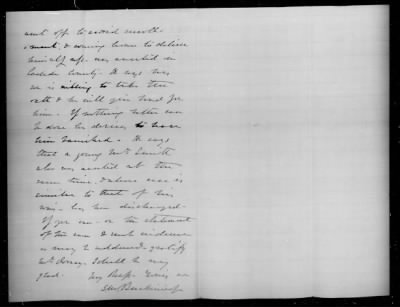 went off to avoid enroll-
ment, & coming home to deliver
himself up - was arrested in
county - He says
he is willing to take the
oath & he will give bond for
him. If nothing better can
be done he desires to have
him banished - He says
that a young Mr Smith
who was arrested at the
same time, & whose case is
similar to that of his
has been discharged -
If you can - on the statement
of the case & such evidence
as may be adduced - gratify
Mr I shall be very
glad.
Very Resp Yours